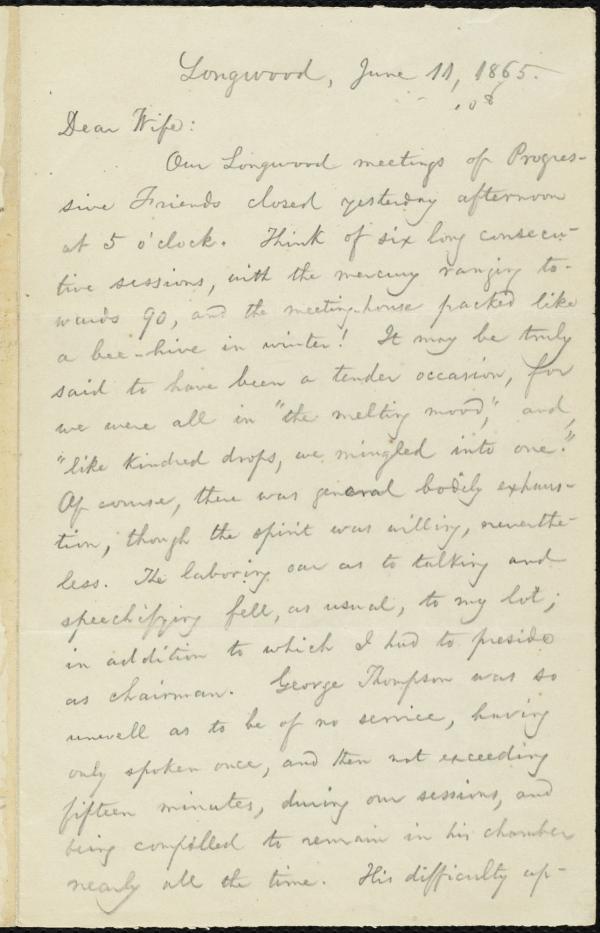 Longwood, June 11, 1865.
Dear Wife:
Our Longwood meetings of Progres-
sive Friends closed yesterday afternoon
at 5 o'clock. Think of six long consecu-
tive sessions, with the mercury ranging to-
wards 90, and the meeting-house packed like
a bee-hive in winter! It may be truly
said to have been a tender occasion, for
we were all in "the melting mood," and,
"like kindred drops, we mingled into one."
Of course, there was general bodily exhaus-
tion, though the spirit was willing, neverthe-
less. The laboring oar as to talking and
speechifying fell, as usual, to my lot;
in addition to which I had to preside
as chairman. George Thompson was so
unwell as to be of no service, having
only spoken once, and then not exceeding
fifteen minutes, during our sessions, and
being compelled to remain in his chamber
nearly all the time. His difficulty ap-